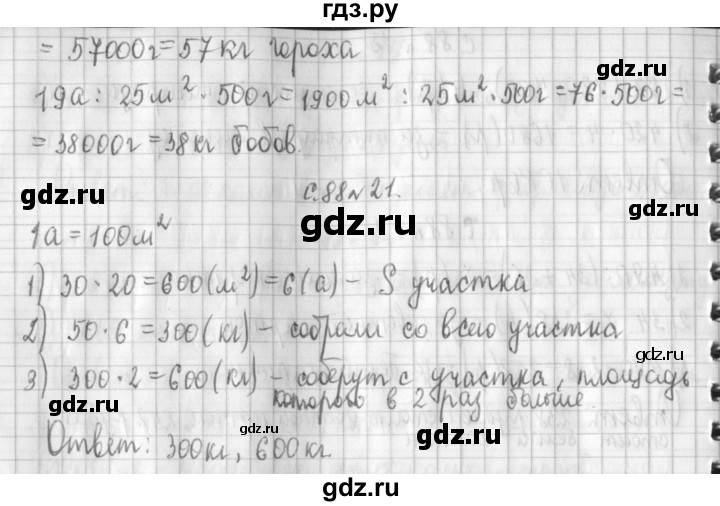 гдз.ру
= 57000г = 57 кг гороха
gdz.ru
19а : 25м² · 500г = 1900 м² : 25 м² · 500г = 76 · 500г =
= 38000г = 38 кг бобов.
gdz.ru
с.88 №21.
gdz.ru
gdz.ru
1а = 100м²
1) 30 · 20 = 600 (м²) = 6 (а) – S участка
2) 50 · 6 = 300 (кг) – собрали со всего участка
gdz.ru
gdz.ru
3) 300 · 2 = 600 (кг) – соберут с участка, площадь
которого в 2 раз больше.
Ответ: 300 кг, 600 кг.
gdz.ru
gdz.ru